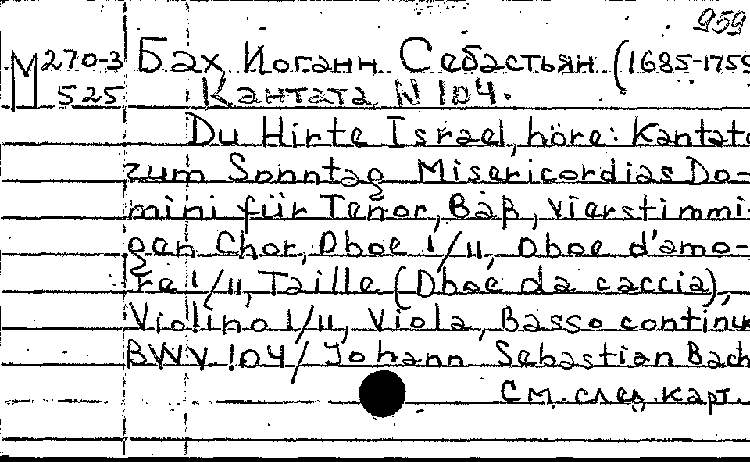 959
М 270-3 Бах, Иоганн Себастьян (1685-1750
525 Кантата N 104.
Du Hirte Israel, höre: Kantate
zum Sonntag Misericordias Do-
mini für Tenor, Baß, vierstimmi-
gen Chor, Oboe I/II, Oboe d'amo-
re I/II, Taille (Oboe da caccia),
Violino I/II, Viola, Basso continuo
BWV 104/ Johann Sebastian Bach
См. след. карт.